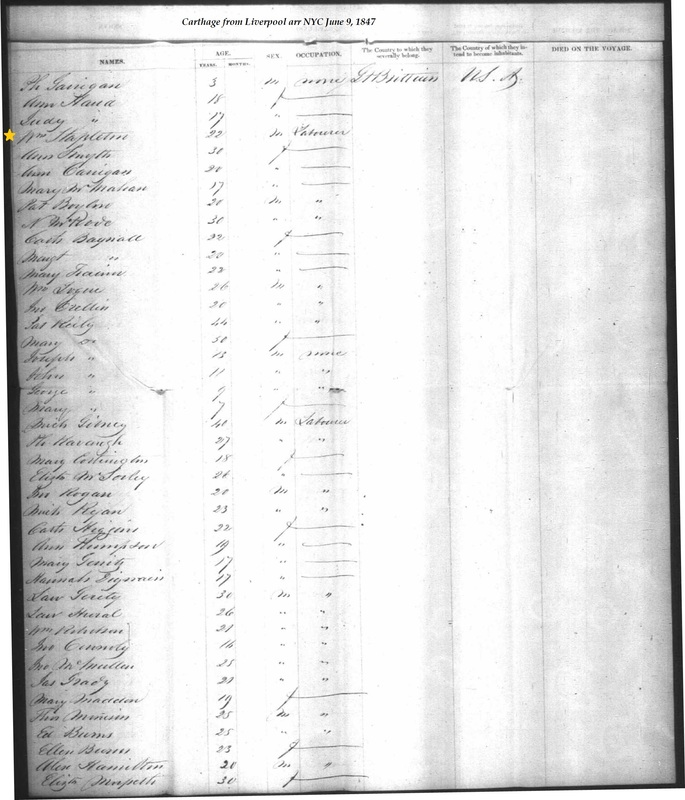 Carthage from Liverpool arr NYC June 9, 1847
NAMES. AGE. SEX. OCCUPATION. The Country to which they severally belong. The Country of which they intend to become inhabitants. DIED ON THE VOYAGE.
YEARS. MONTHS.
3 m none Gt Brittain U.S. A.
Ann 18 f
Judy " 17 "
Wm Stapleton 22 m Labourer
Ann Smyth 30 f
Ann Carrigan 20 "
Mary McMahan 17 "
Pat Boylan 20 m "
30 " "
Cath Bagnall 22 f
Margt " 20 "
Mary 22 "
Wm Logue 26 m "
Jno Crellin 20 " "
Jas Reily 44 " "
Mary Do 50 f
Joseph " 13 m none
John " 11 " "
George " 9 " "
Mary " 7 f
Mich Gibney 40 m Labourer
Th Kavanagh 27 " "
Mary 18 f
Eliza McSorley 26 "
Jno Rogan 20 m "
Mich Ryan 23 " "
Cath Higgins 22 f
Ann 19 "
Mary 17 "
Hannah 17 "
Law 30 m "
Law 26 " "
Wm Robinson 21 " "
Jno Connoly 16 " "
Jno McMullen 25 " "
Jas Grady 21 " "
Mary Madden 19 f
Thos 25 m "
Ed Burns 25 " "
Ellen Burns 23 f
Alex Hamilton 20 m "
Eliza 30 f